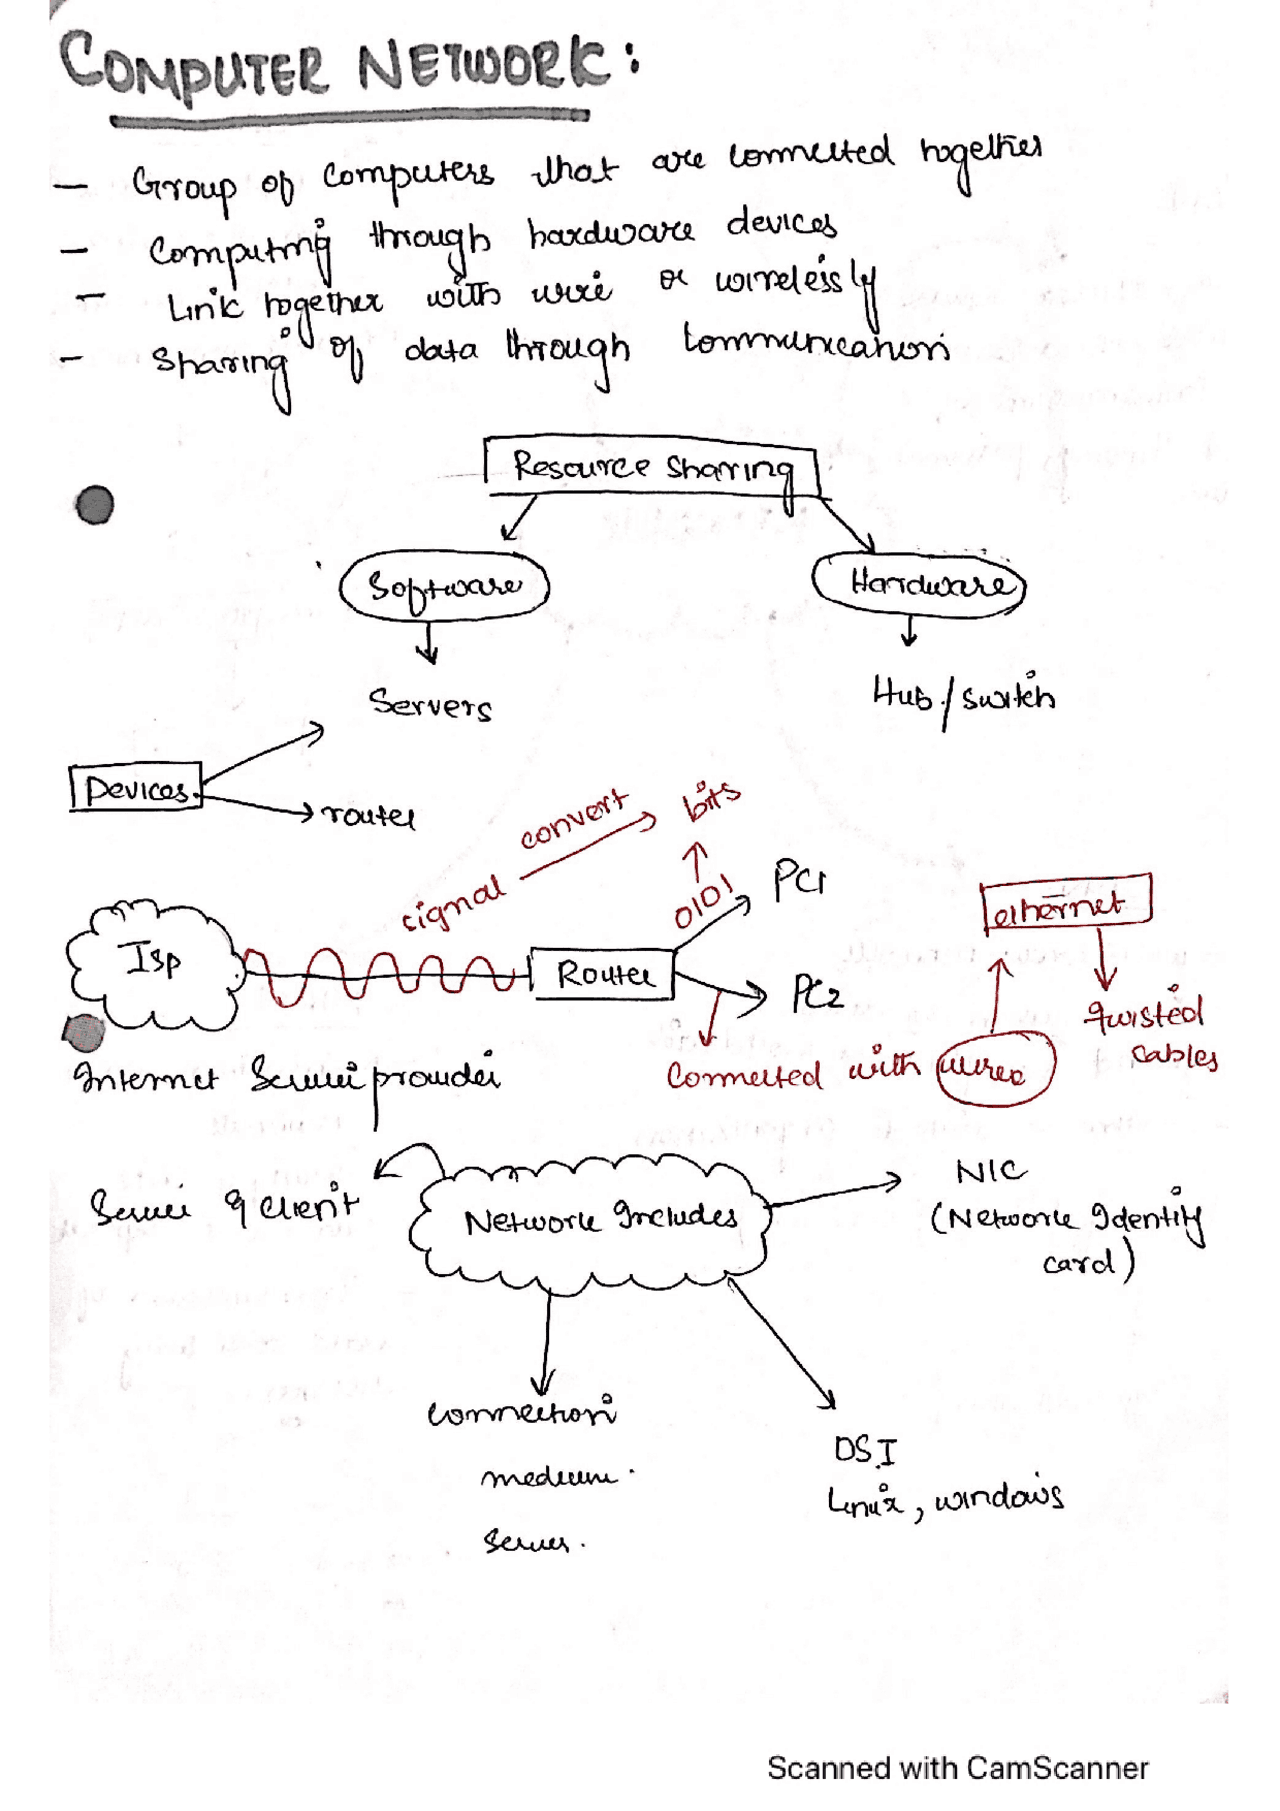 COMPUTER NETWORK:
- Group of computers that are connected together
- Computing through hardware devices
- Link together with wire or wirelessly
- Sharing of data through communication
Resource Sharing
Software
Hardware
Servers
Hub/switch
Devices
router
signal convert bits
0101
PC1
Isp
Router
PC2
ethernet
twisted
cables
Internet Service provider
Connected with wired
Network Includes
NIC
(Network Identity
card)
Server & client
Connection
medium.
server.
OSI
Linux, windows
Scanned with CamScanner